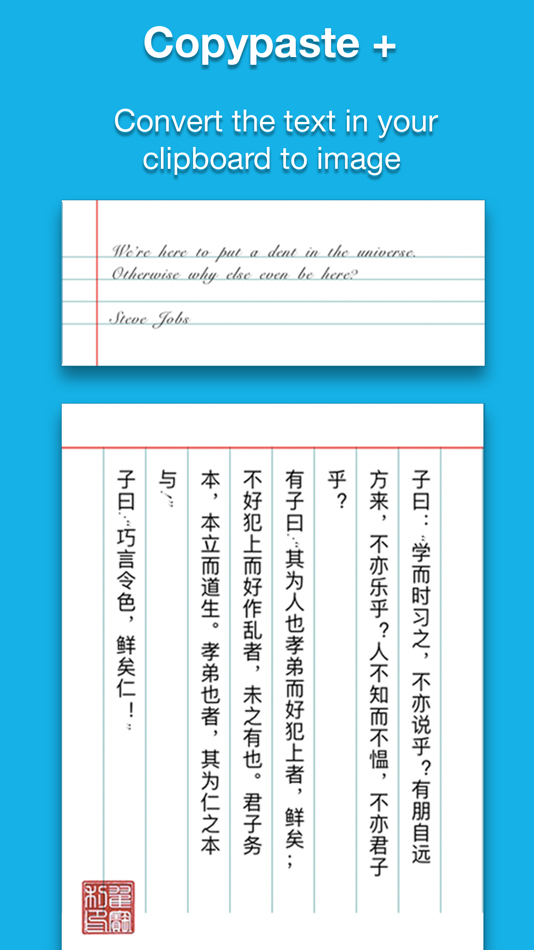 Copypaste +
Convert the text in your
clipboard to image
We're here to put a dent in the universe.
Otherwise why else even be here?
Steve Jobs
子曰：“学而时习之，不亦说乎？有朋自远
方来，不亦乐乎？人不知而不愠，不亦君子
乎？
有子曰：“其为人也孝弟而好犯上者，鲜矣；
不好犯上而好作乱者，未之有也。君子务
本，本立而道生。孝弟也者，其为仁之本
与！”
子曰：“巧言令色，鲜矣仁！”